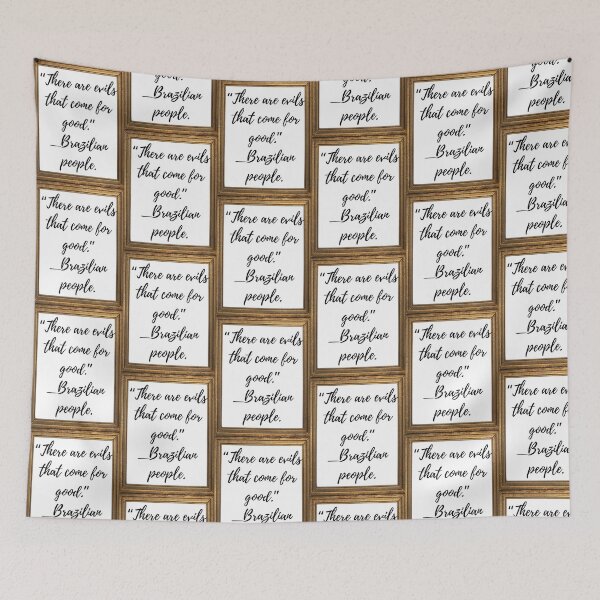 “There are evils
that come for
good."
_Brazilian
people.
“There are evils
that come for
good."
_Brazilian
people.
“There are evils
that come for
good."
_Brazilian
people.
“There are evils
that come for
good."
_Brazilian
good."
_Brazilian
people.
“There are evils
that come for
good."
_Brazilian
people.
“There are evils
that come for
good."
_Brazilian
people.
“There are evils
that come for
good."
_Brazilian
people.
“There are evils
“There are evils
that come for
good."
_Brazilian
people.
“There are evils
that come for
good."
_Brazilian
people.
“There are evils
that come for
good."
_Brazilian
people.
“There are evils
that come for
good."
_Brazilian
_Brazilian
people.
“There are evils
that come for
good."
_Brazilian
people.
“There are evils
that come for
good."
_Brazilian
people.
“There are evils
that come for
good."
_Brazilian
people.
“There are evils
“There are evils
that come for
good."
_Brazilian
people.
“There are evils
that come for
good."
_Brazilian
people.
“There are evils
that come for
good."
_Brazilian
people.
“There are evils
that come for
good."
_Brazilian
good."
_Brazilian
people.
“There are evils
that come for
good."
_Brazilian
people.
“There are evils
that come for
good."
_Brazilian
people.
“There are evils
that come for
good."
_Brazilian
people.
“There are evils